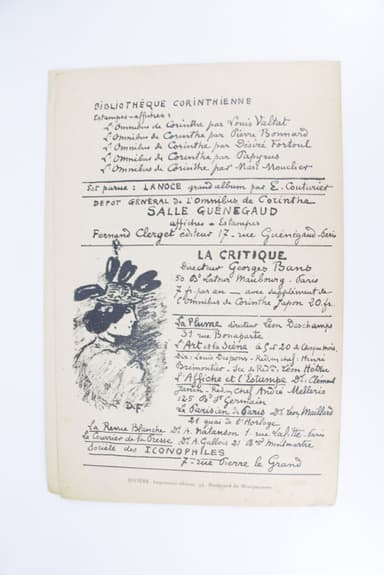 BIBLIOTHÈQUE CORINTHIENNE
Estampes-affiches :
L'Omnibus de Corinthe par Louis Valtat
L'Omnibus de Corinthe par Pierre Bonnard
L'Omnibus de Corinthe par Désiré Fortoul
L'Omnibus de Corinthe par Papyrus
L'Omnibus de Corinthe par Marc Mouclier
Est parue : LA NOCE grand album par E. Couturier
DEPOT GÉNÉRAL de L'Omnibus de Corinthe
SALLE GUÉNÉGAUD
affiches & Estampes
Fernand Clerget éditeur 17-rue Guénégaud-Paris
LA CRITIQUE
Directeur Georges Bans
50 Bd Latour Maubourg - Paris
7 fr. par an — avec supplément de
L'Omnibus de Corinthe Japon 20 fr.
La Plume directeur Léon Deschamps
31 rue Bonaparte
L'Art et la Scène
Dir: Louis
Henri
Léon
L'Affiche et l'Estampe Dr: Clément
Janin - André Mellerio
125 Bd St Germain
Le Parisien de Paris Dr Léon Maillard
21 quai de l'Horloge
D.F
La Revue Blanche Dr A. Natanson 1 rue Laffitte. Paris
Le Courrier de la Presse Dr A. Gallois 21 Bd Montmartre
Société des ICONOPHILES
7 - rue Pierre le Grand